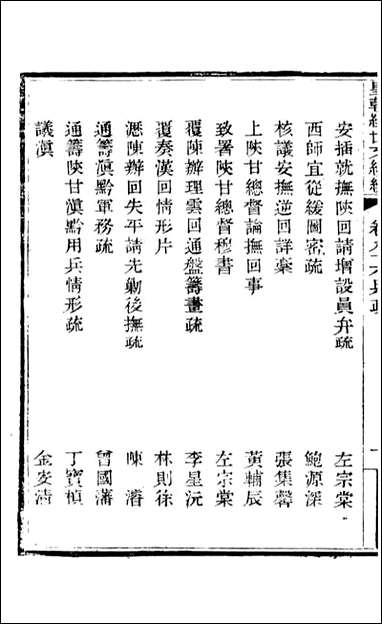 皇朝經世文續編
安插就撫陝回請增設員弁疏 左宗棠
西師宜從緩圖密疏 鮑源深
核議安撫逆回詳稾 張集馨
上陝甘總督論撫回事 黃輔辰
致署陝甘總督穆書 左宗棠
覆陳辦理雲回通盤籌畫疏 李星沅
覆奏漢回情形片 林則徐
瀝陳辦回失平請先勦後撫疏 陳濬
通籌滇黔軍務疏 曾國藩
通籌陝甘滇黔用兵情形疏 丁寶楨
議滇 金安清